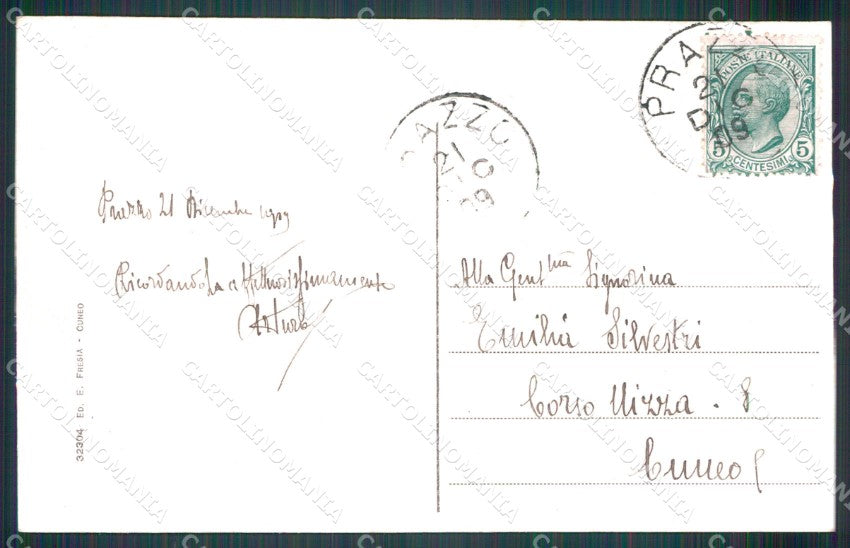 Prazzo 21 Dicembre 1909
RicordandoLa affettuosissimamente
Arturo
32304 ED. E. FRESIA - CUNEO
PRAZZO
21 DIC 09
RAZZO
21
POSTE ITALIANE
5 CENTESIMI 5
Alla Gent.ma Signorina
Emilia Silvestri
Corso Nizza. 8
Cuneo
CARTOLINOMANIA